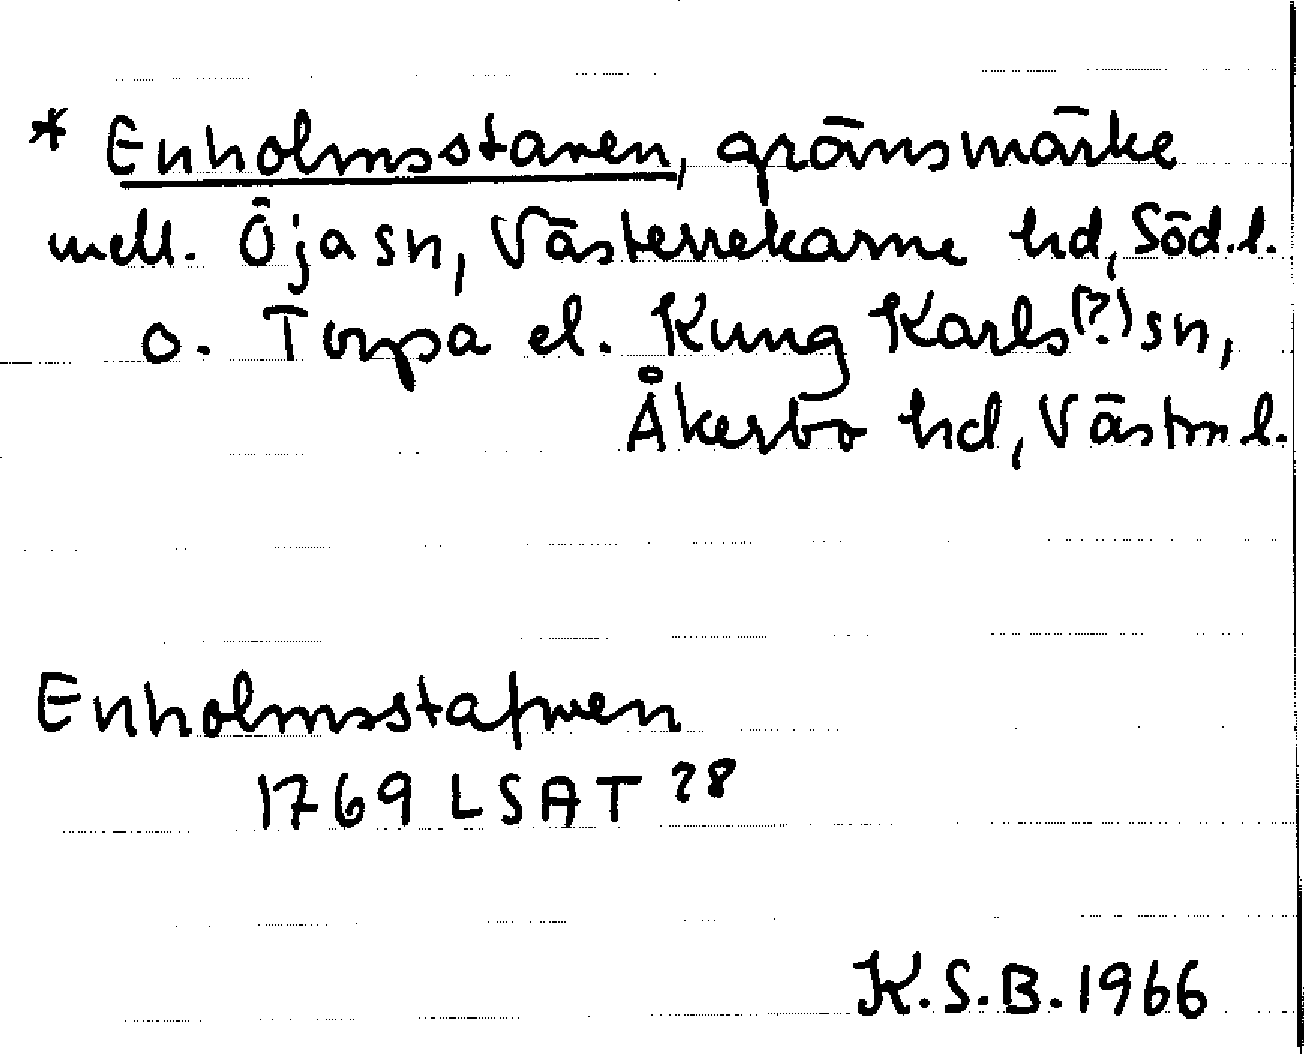 * Enholmsstaven, gränsmärke
mell. Öja sn, Västerrekarne hd, Söd.l.
o. Torpa el. Kung Karls(?) sn,
Åkerbo hd, Västm l.
Enholmsstafwen
1769 LSA T 28
K.S.B. 1966